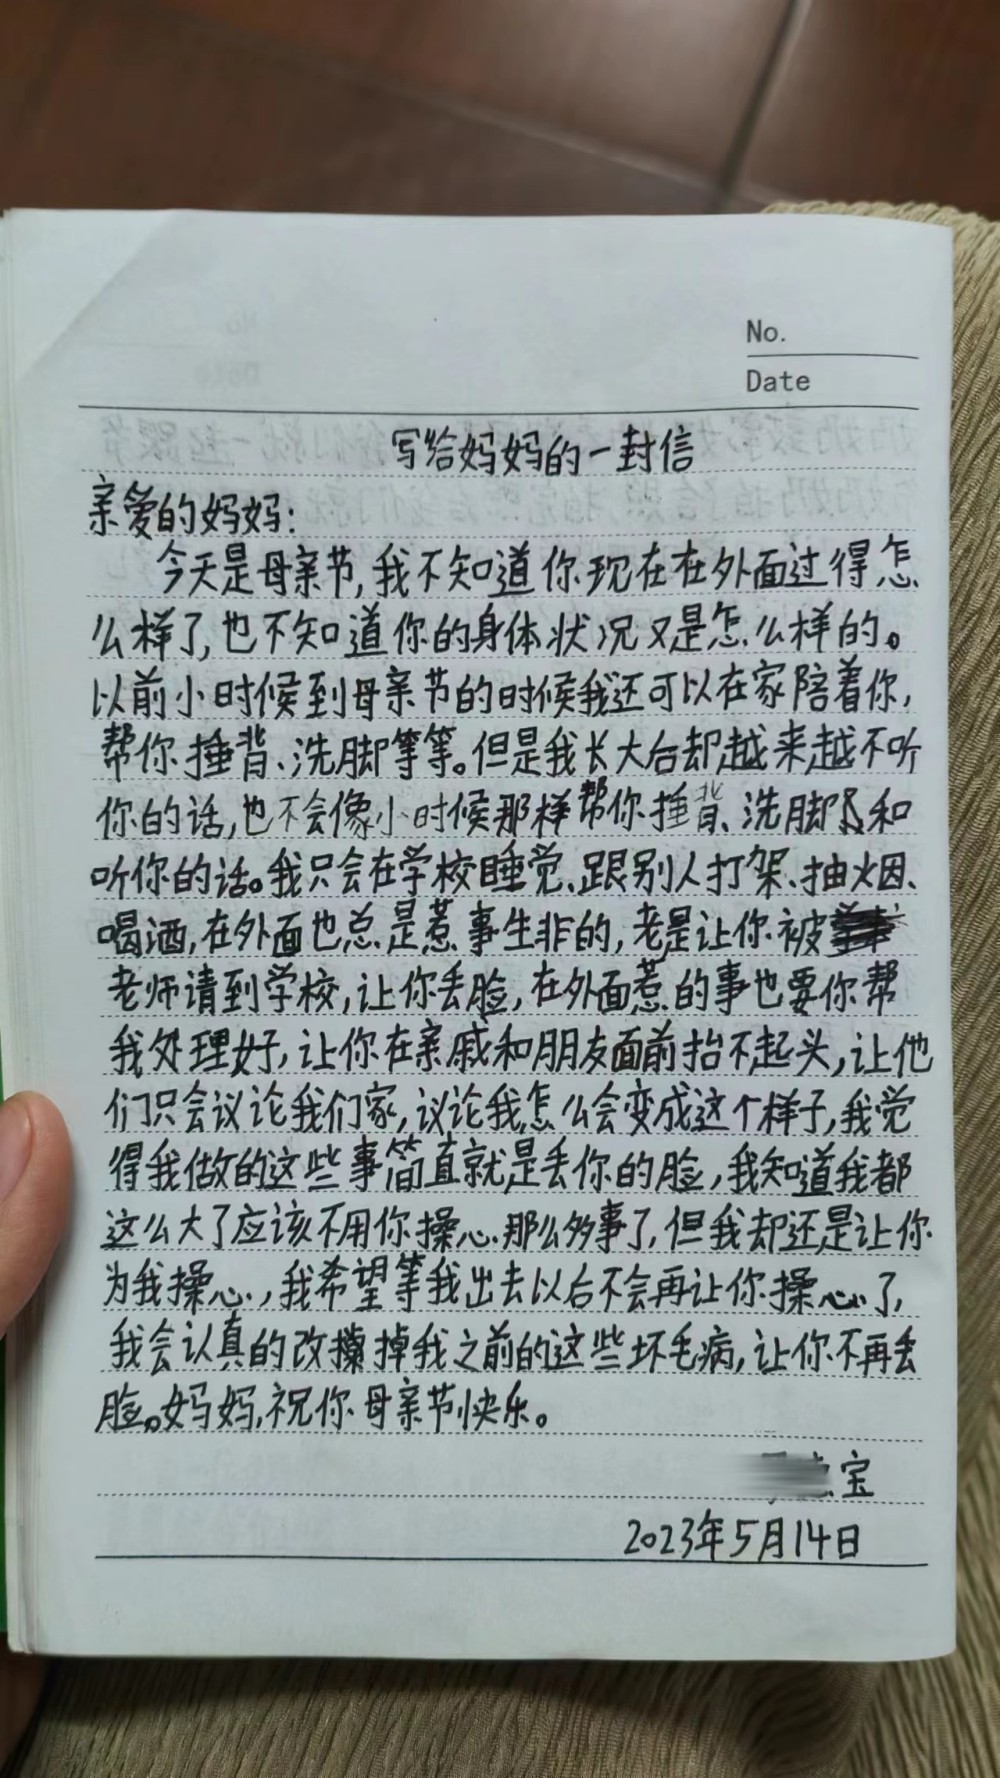 No.
Date
写给妈妈的一封信
亲爱的妈妈:
今天是母亲节,我不知道你现在在外面过得怎
么样了,也不知道你的身体状况又是怎么样的。
以前小时候到母亲节的时候我还可以在家陪着你,
帮你捶背、洗脚等等。但是我长大后却越来越不听
你的话,也不会像小时候那样帮你捶背、洗脚和
听你的话。我只会在学校睡觉、跟别人打架、抽烟、
喝酒,在外面也总是惹事生非的,老是让你被
老师请到学校,让你丢脸,在外面惹的事也要你帮
我处理好,让你在亲戚和朋友面前抬不起头,让他
们只会议论我们家,议论我怎么会变成这个样子,我觉
得我做的这些事简直就是丢你的脸,我知道我都
这么大了应该不用你操心那么多事了,但我却还是让你
为我操心,我希望等我出去以后不会再让你操心了,
我会认真的改掉我之前的这些坏毛病,让你不再丢
脸。妈妈,祝你母亲节快乐。
宝
2023年5月14日